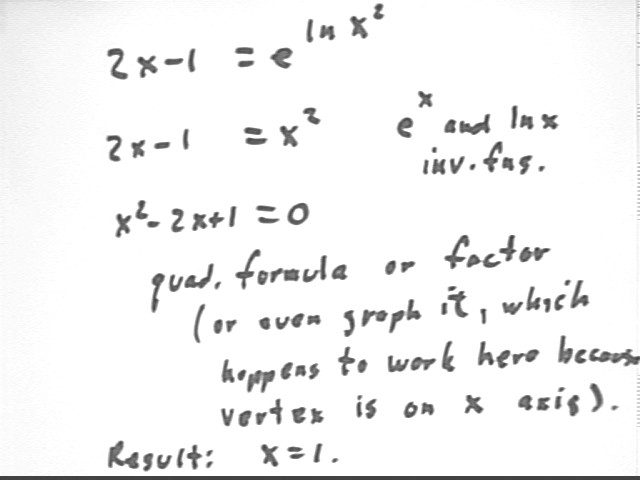 2x-1 = e^{ln x^2}
2x-1 = x^2 e^x and ln x
inv. fns.
x^2-2x+1=0
quad. formula or factor
(or even graph it, which
happens to work here because
vertex is on x axis).
Result: x=1.